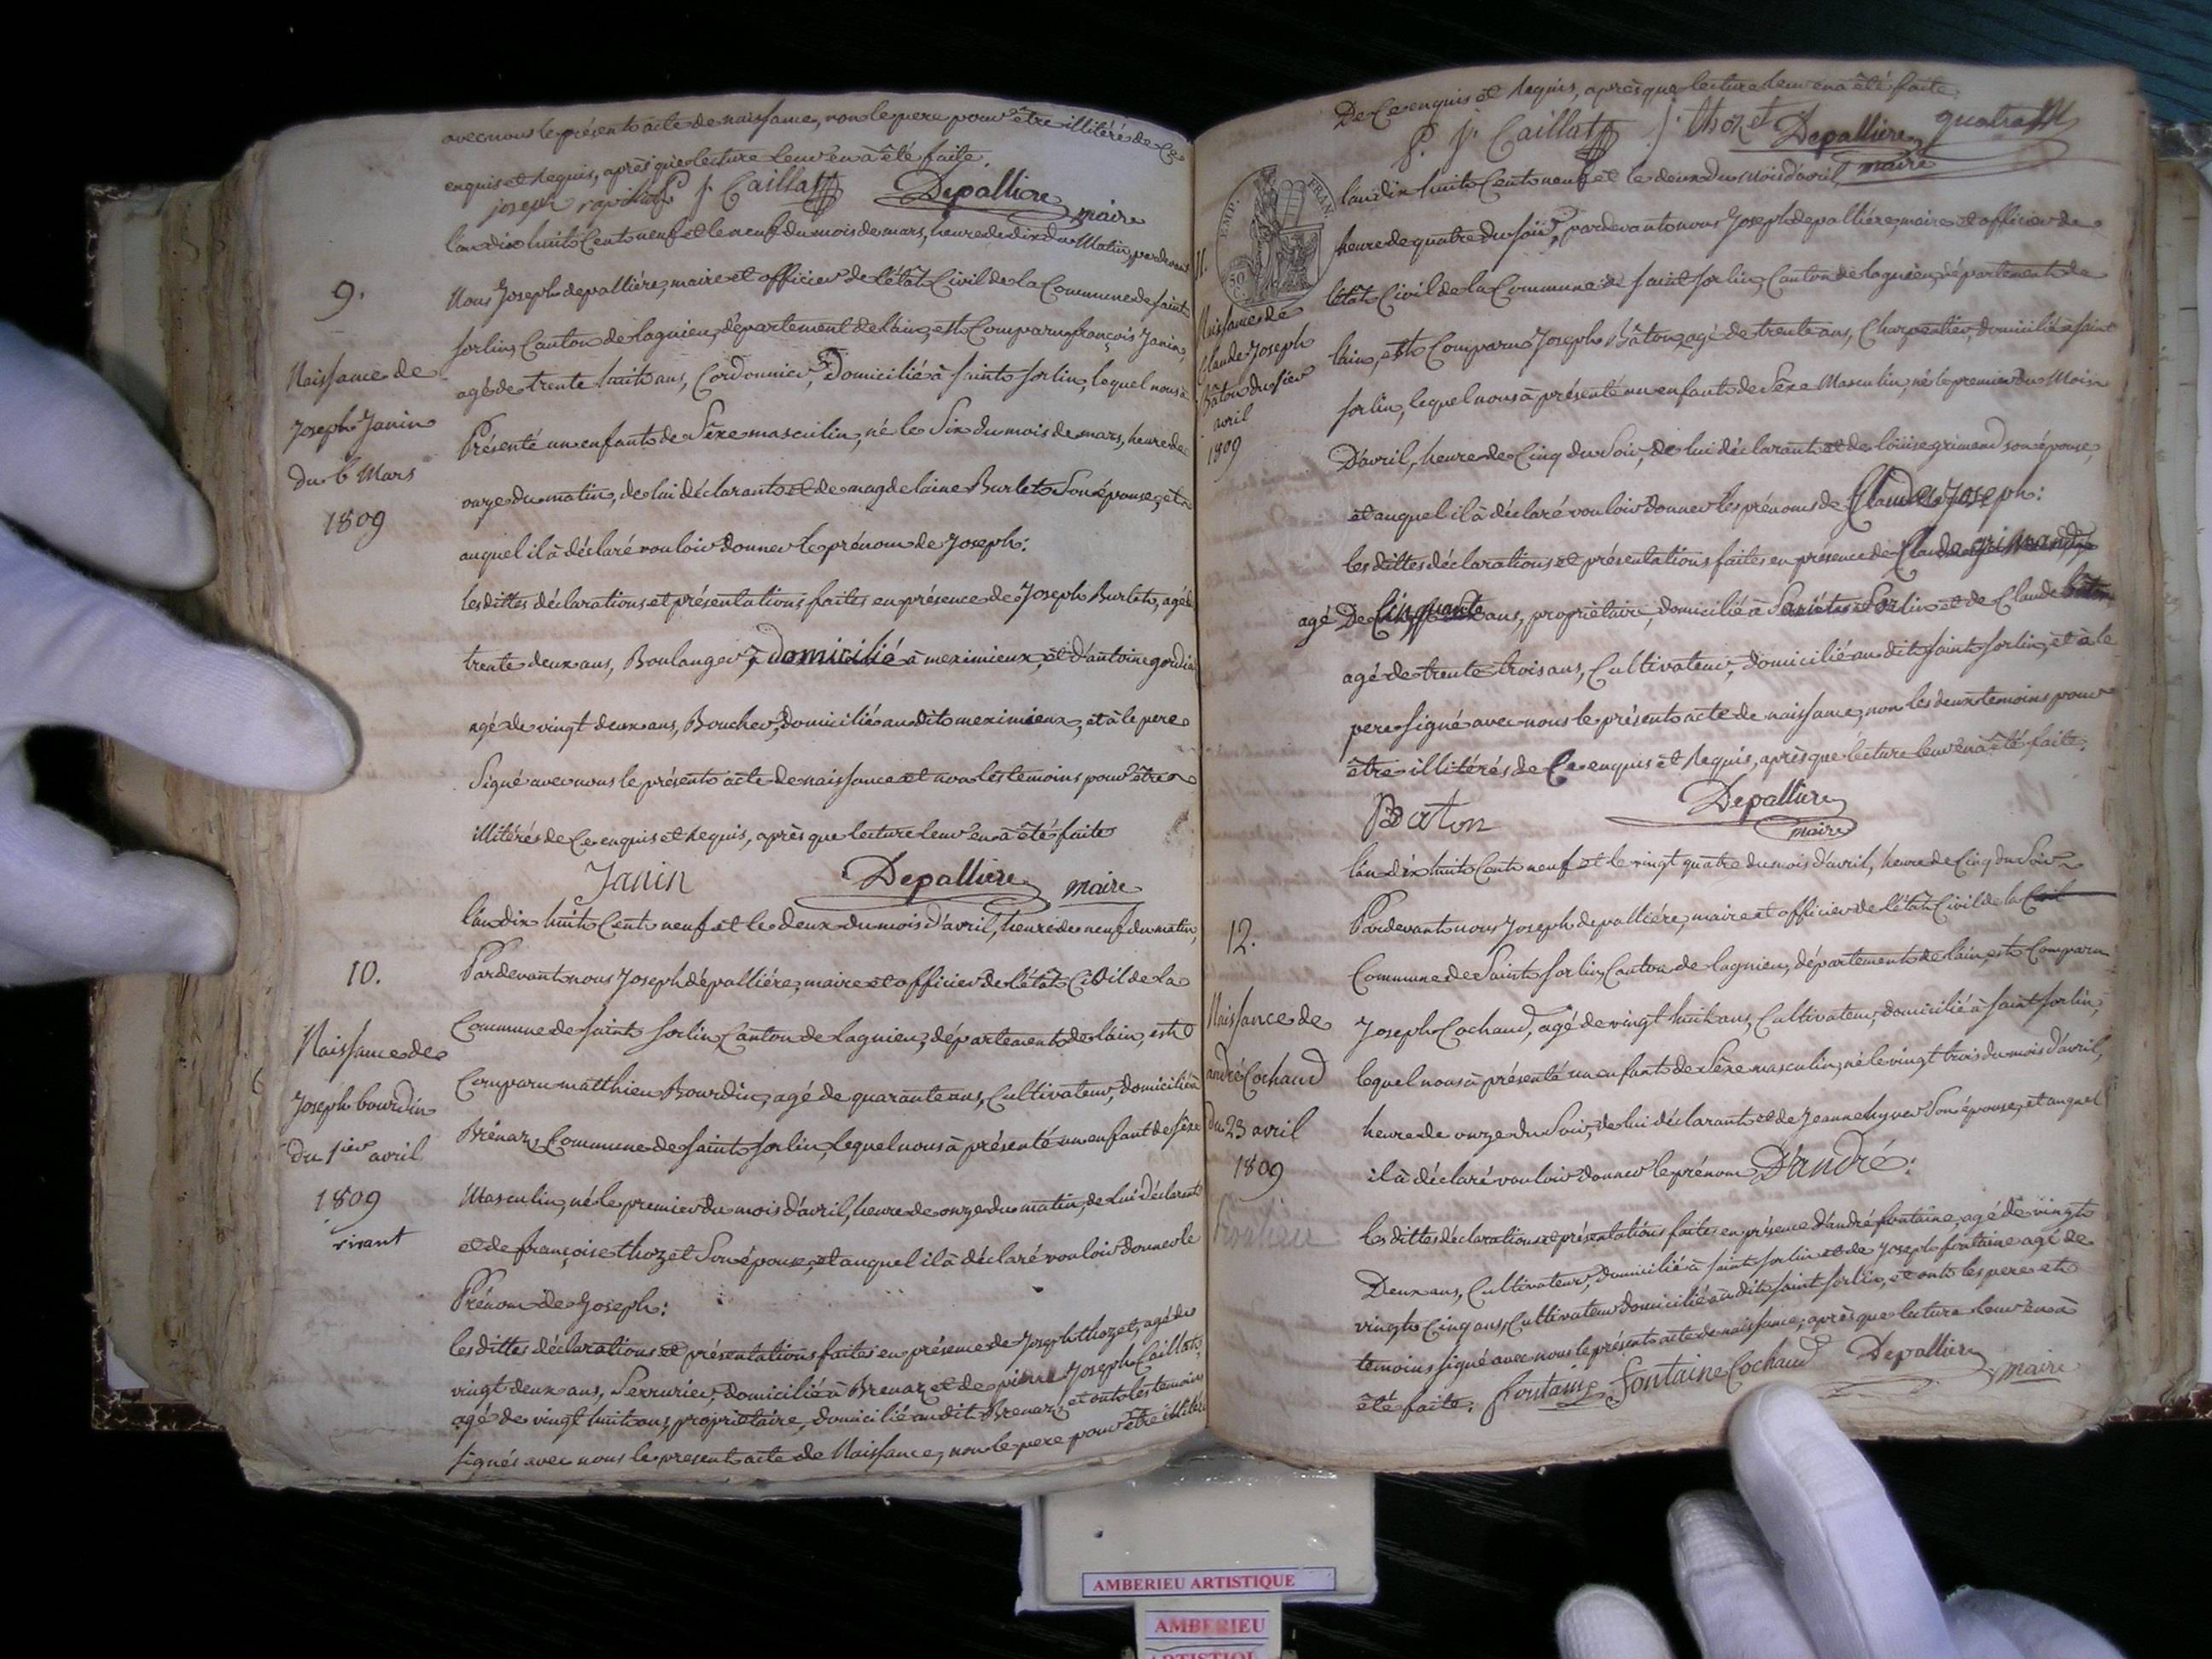 avec nous le présent acte de naissance, non le pere pour être illitéré de Ce
enquis et Requis, après que lecture leur en à été faite.
joseph P j. Caillat Depalliere maire
l'an dix huit Cent neuf et le neuf du mois de mars, heure de dix du Matin, pardevant
9.
Nous Joseph depalliére, maire et officier de l'état Civil de la Commune de saint
sorlin, Canton de lagnieu, département de l'ain, est Comparu françois Janin,
Naissance de
Joseph Janin
du 6 Mars
1809
agé de trente huit ans, Cordonnier, Domicilié à saint sorlin, lequel nous à
Présenté un enfant de Séxe masculin, né le Six du mois de mars, heure de
onze du matin, de lui déclarant et de magdelaine Burlet Son épouse, et
auquel il à déclaré vouloir donner le prénom de Joseph:
les dittes déclarations et présentations faites en présence de Joseph Burlet, agé de
trente deux ans, Boulanger, domicilié à meximieux, et d'antoine gordia
agé de vingt deux ans, Boucher, domicilié au dit meximieux, et à le pere
Signé avec nous le présent acte de naissance et non les temoins pour être
illitérés de Ce enquis et Requis, après que lecture leur en à été faite
Janin Depalliere maire
l'an dix huit Cent neuf et le deux du mois d'avril, heure de neuf du matin,
10.
Pardevant nous Joseph dépalliére, maire et officier de l'état Civil de la
Commune de saint sorlin, Canton de lagnieu, département de l'ain, est
Naissance de
Joseph bourdin
du 1ier avril
1809
vivant
Comparu matthieu Bourdin, agé de quarante ans, Cultivateur, domicilié à
Brénaz, Commune de saint sorlin, lequel nous à présenté un enfant de séxe
Masculin, né le premier du mois d'avril, heure de onze du matin, de lui déclarant
et de françoise thozet Son épouse, et auquel il à déclaré vouloir donner le
Prénom de Joseph:
les dittes déclarations et présentations faites en présence de Joseph thozet, agé de
vingt deux ans, Serrurier, domicilié à Brenaz et de pierre Joseph Caillat,
agé de vingt huit ans, propriétaire, domicilié au dit Brenaz, et ont les temoins
signés avec nous le present acte de Naissance, non le pere pour être illitéré
De Ce enquis et Requis, après que lecture leur en à été faite.
P. j. Caillat j. thozet Depalliere maire
EMP. FRAN.
l'an dix huit Cent neuf et le deux du mois d'avril,
11.
heure de quatre du soir, pardevant nous Joseph depalliére, maire et officier de
l'état Civil de la Commune de saint sorlin, Canton de lagnieu, département de
Naissance de
Claude Joseph
Bâton du 1ier
avril
1809
l'ain, est Comparu Joseph Bâton, agé de trente ans, Charpentier, domicilié à saint
sorlin, lequel nous à présenté un enfant de Séxe Masculin, né le premier du Mois
D'avril, heure de Cinq du Soir, de lui déclarant et de louise grimand son épouse,
et auquel il à déclaré vouloir donner les prénoms de Claude Joseph:
les dittes déclarations et présentations faites en présence de Claude grimand
agé De Cinquante ans, propriétaire, domicilié à Saint Sorlin et de Claude bâton
agé de trente trois ans, Cultivateur, domicilié au dit saint sorlin, et à le
pere signé avec nous le présent acte de naissance, non les deux temoins pour
être illitérés de Ce enquis et Requis, après que lecture leur en à été faite.
Baton Depalliere maire
l'an dix huit Cent neuf et le vingt quatre du mois d'avril, heure de Cinq du Soir
12.
Pardevant nous Joseph depalliére, maire et officier de l'état Civil de la
Commune de Saint sorlin, Canton de lagnieu, département de l'ain, est Comparu
Naissance de
andré Cochaud
du 23 avril
1809
Joseph Cochaud, agé de vingt huit ans, Cultivateur, domicilié à saint sorlin,
lequel nous à présenté un enfant de Séxe masculin, né le vingt trois du mois d'avril,
heure de onze du Soir, de lui déclarant et de Jeanne hyver Son épouse, et auquel
il à déclaré vouloir donner le prénom D'andré:
les dittes déclarations et présentations faites en présence d'andré fontaine, agé de vingt
Deux ans, Cultivateur, domicilié à saint sorlin et de Joseph fontaine agé de
vingt Cinq ans, Cultivateur domicilié au dit saint sorlin, et ont les pere et
temoins signé avec nous le présent acte de naissance, après que lecture leur en à
été faite. fontaine fontaine Cochaud Depalliere maire
AMBERIEU ARTISTIQUE
AMBERIEU
ARTISTIQUE